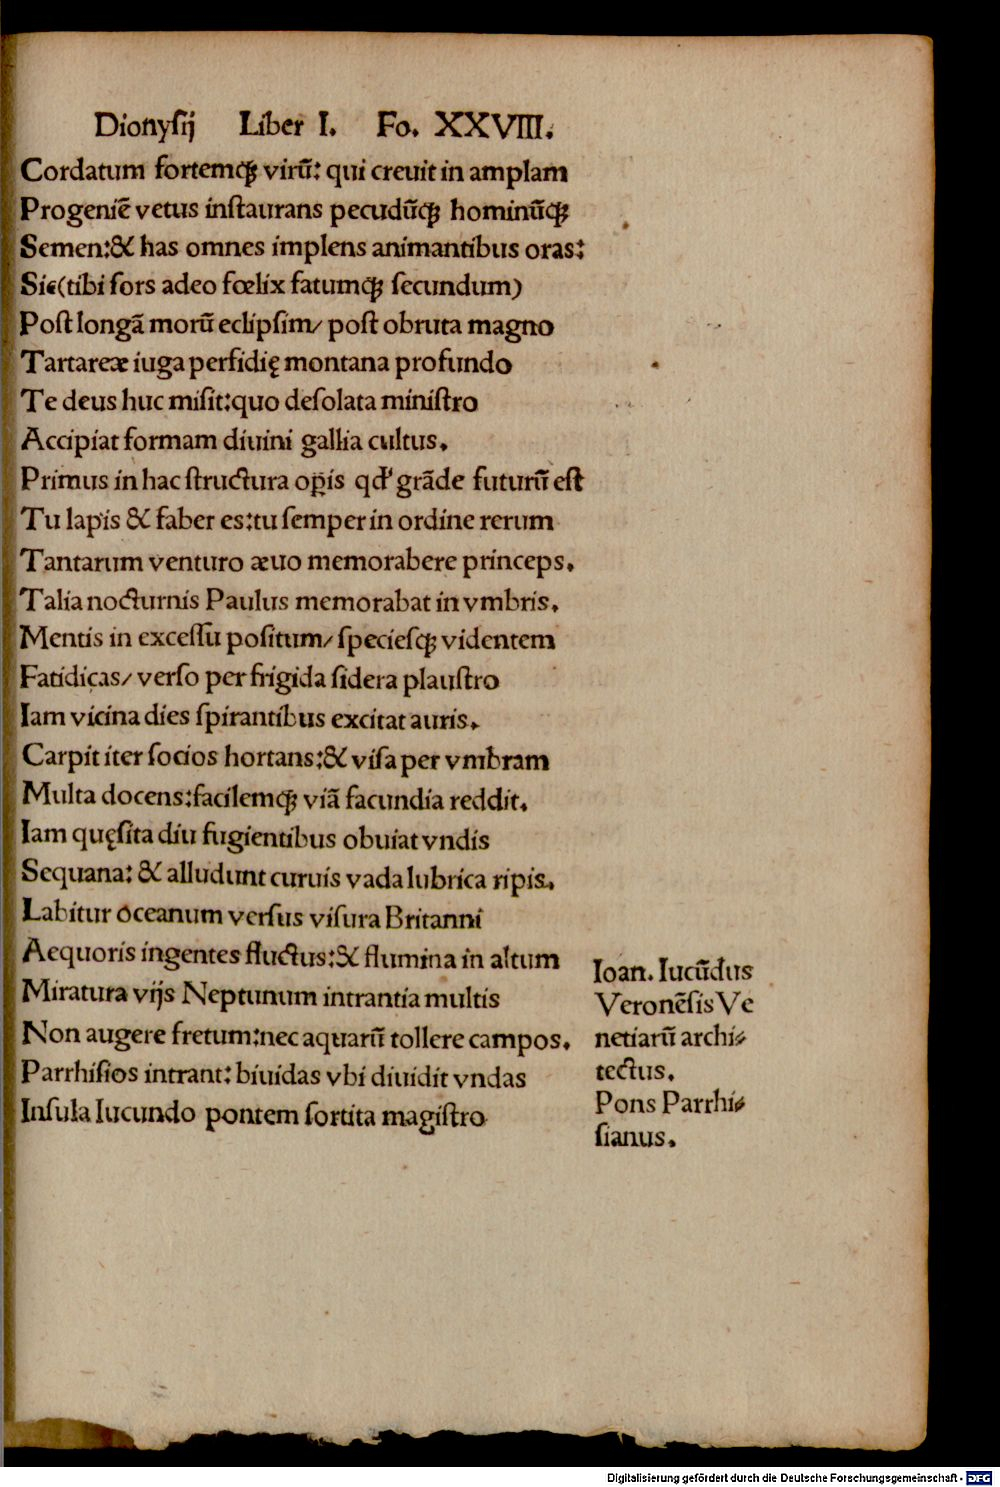 Dionyſij Liber I. Fo. XXVIII.
Cordatum fortemqꝫ virū: qui creuit in amplam
Progeniē vetus inſtaurans pecudūqꝫ hominūqꝫ
Semen:& has omnes implens animantibus oras:
Sic(tibi ſors adeo fœlix fatumqꝫ ſecundum)
Poſt longā morū eclipſim/ poſt obruta magno
Tartareæ iuga perfidię montana profundo
Te deus huc miſit:quo deſolata miniſtro
Accipiat formam diuini gallia cultus.
Primus in hac ſtructura oꝑis qd' grāde futurū eſt
Tu lapis & faber es:tu ſemper in ordine rerum
Tantarum venturo æuo memorabere princeps.
Talia nocturnis Paulus memorabat in vmbris.
Mentis in exceſſu poſitum/ ſpecieſqꝫ videntem
Fatidicas/ verſo per frigida ſidera plauſtro
Iam vicina dies ſpirantibus excitat auris.
Carpit iter ſocios hortans:& viſa per vmbram
Multa docens:facilemqꝫ viā facundia reddit.
Iam quęſita diu fugientibus obuiat vndis
Sequana: & alludunt curuis vada lubrica ripis.
Labitur oceanum verſus viſura Britanni
Aequoris ingentes fluctus:& flumina in altum
Miratura vijs Neptunum intrantia multis
Non augere fretum:nec aquarū tollere campos.
Parrhiſios intrant: biuidas vbi diuidit vndas
Inſula Iucundo pontem ſortita magiſtro
Ioan. Iucūdus
Veronēſis Ve
netiarū archi⸗
tectus.
Pons Parrhi⸗
ſianus.
Digitalisierung gefördert durch die Deutsche Forschungsgemeinschaft - DFG